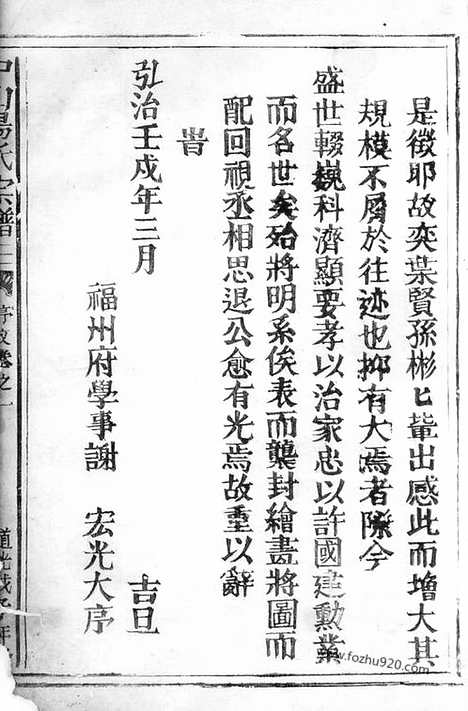 是徵耶故奕葉賢孫彬匕輩出感此而增大其
規模不屑於往迹也抑有大焉者際今
盛世輟巍科濟顯要孝以治家忠以許國建勳業
而名世矣殆將明系俟表而襲封繪畫將圖而
配回視丞相思退公愈有光焉故重以辭
旹
弘治壬戌年三月 吉旦
福州府學事謝 宏光大序
湯氏宗譜
www.fozhu920.com